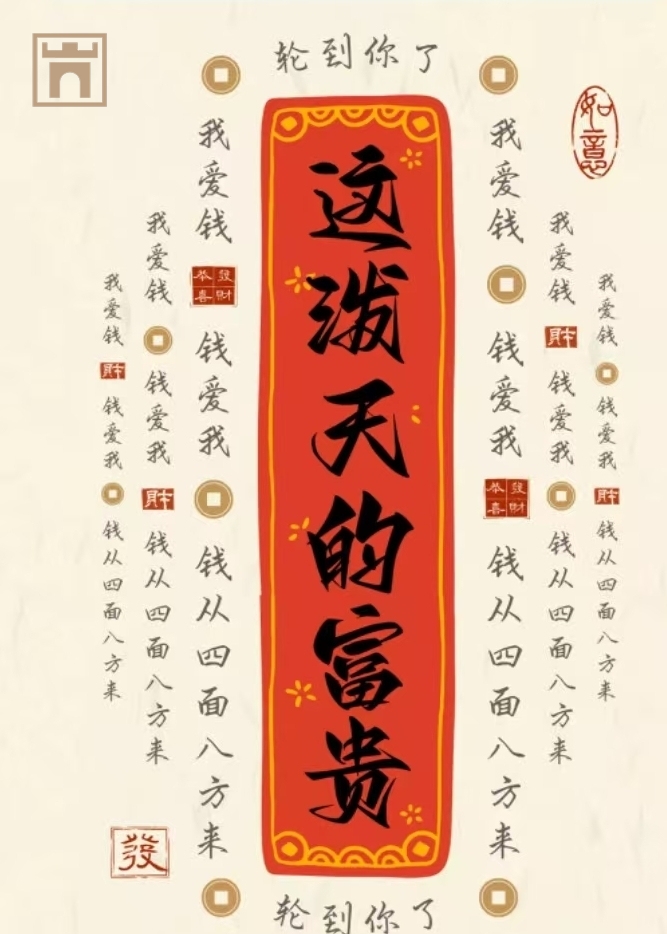 轮到你了
如意
我爱钱
钱爱我
钱从四面八方来
我爱钱
財
钱爱我
钱从四面八方来
我爱钱
恭喜發財
钱爱我
钱从四面八方来
这泼天的富贵
我爱钱
钱爱我
恭喜發財
钱从四面八方来
我爱钱
財
钱爱我
钱从四面八方来
我爱钱
钱爱我
財
钱从四面八方来
財
發
轮到你了